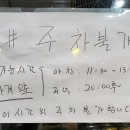 # 주차불가
가능시간<
아침 : 11:30-13
저녁 : 20:00부
이 시간외 주차 불가합니다